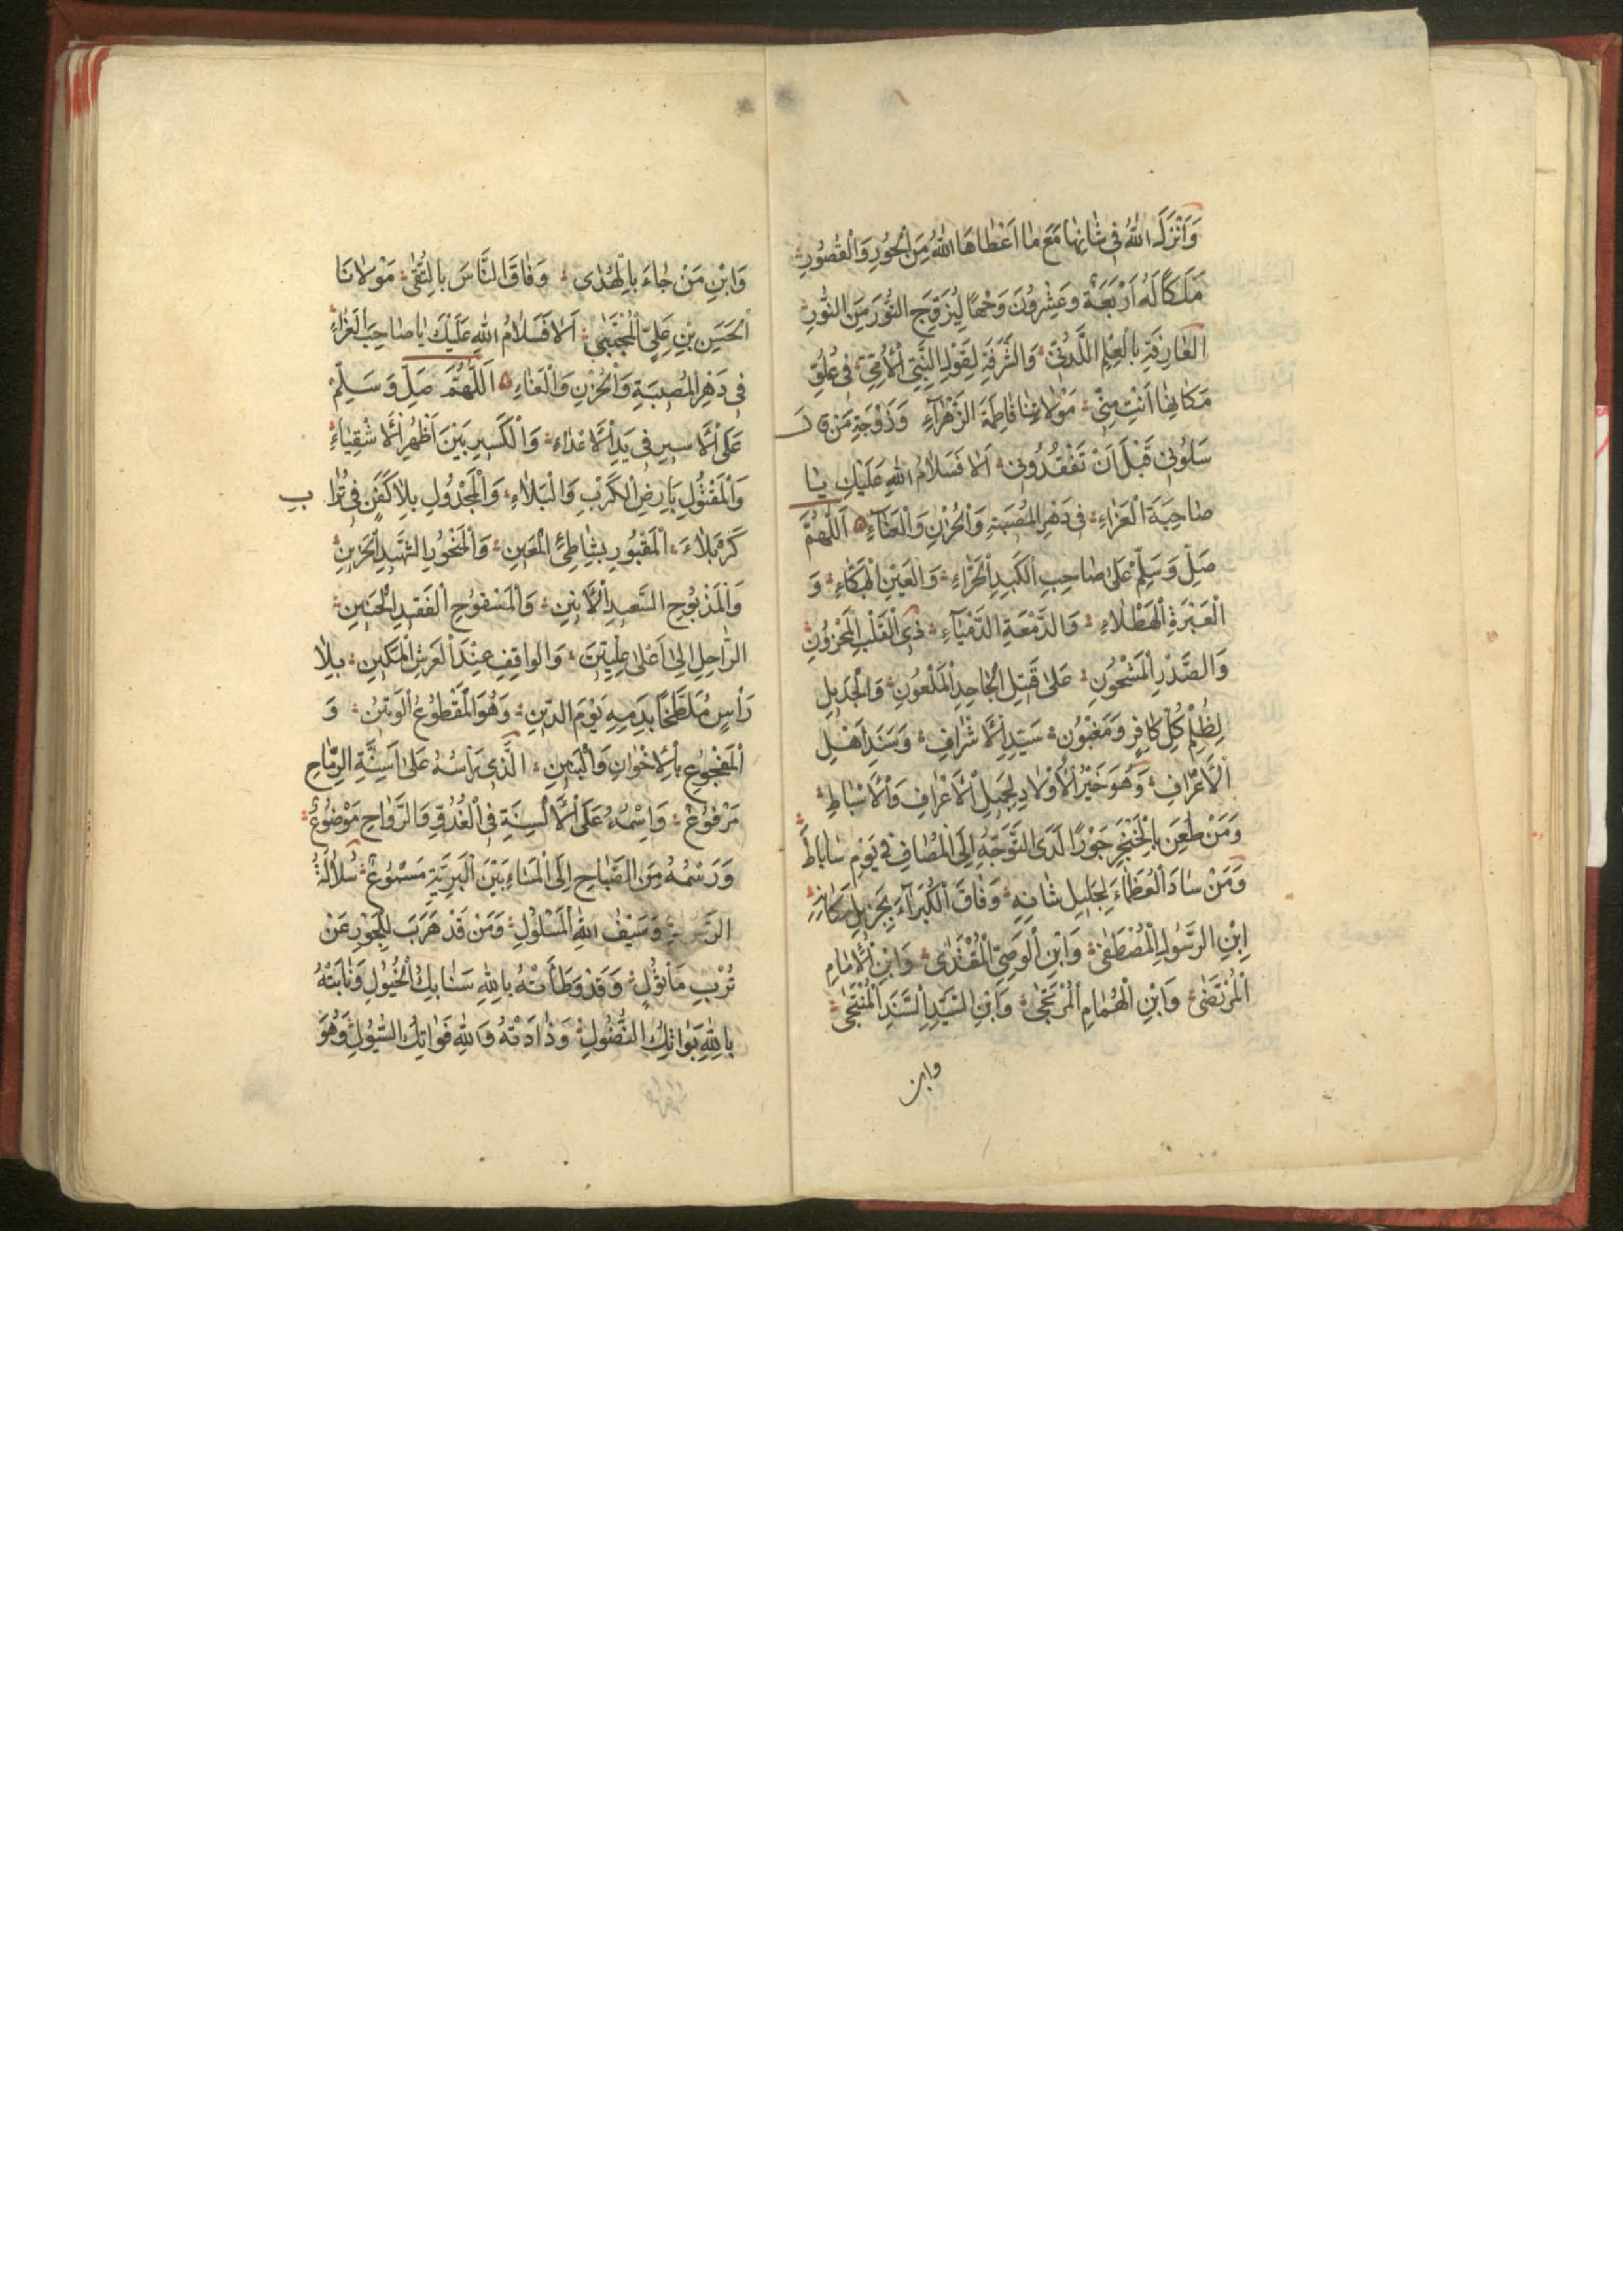 وَاَنْزَلَ اللهُ فى شَانِهَا مَعَ مَا اَعْطَاهَا اللهُ مِنَ الْحُورِ وَالْقُصُورِ
مَلَكًا لَهُ اَرْبَعَةٌ وَعِشْرُونَ وَجْهًا لِيُزَوِّجَ النُّورَ مِنَ النُّورِ
الْعَارِفَةِ بِالْعِلْمِ اللَّدُنِّىِّ وَالشَّرَفَةِ لِقَوْلِ النَّبِىِّ الْاُمِّىِّ فى عُلُوِّ
مَكَانِهَا اَنْتِ مِنِّى مَوْلَاتِنَا فَاطِمَةَ الزَّهْرَآءِ وَزَوْجَةِ مَنْ قَالَ
سَلُونِى قَبْلَ اَنْ تَفْقُدُونِى اَلَا فَسَلَامُ اللهِ عَلَيْكِ يَا
صَاحِبَةَ الْعَزَاءِ فى دَهْرِ الْمُصِيبَةِ وَالْحُزْنِ وَالْعَنَآءِ اَللّٰهُمَّ
صَلِّ وَسَلِّمْ عَلَى صَاحِبِ الْكَبِدِ الْحَرَّاءِ وَالْعَيْنِ الْبَكَّاءِ وَ
الْعَبْرَةِ الْهَطْلَاءِ وَالدَّمْعَةِ الدَّمْيَآءِ ذِى الْقَلْبِ الْمَحْزُونِ
وَالصَّدْرِ الْمَشْحُونِ عَلَى قَتِيلِ الْجَاحِدِ الْمَلْعُونِ وَالْجَدِيلِ
لِظُلْمِ كُلِّ كَافِرٍ وَمَغْبُونٍ سَيِّدِ الْاَشْرَافِ وَسَنَدِ اَهْلِ
الْاَعْرَافِ وَهُوَ خَيْرُ الْاَوْلَادِ لِجَمِيلِ الْاَعْرَافِ وَالْاَسْبَاطِ
وَمَنْ طُعِنَ بِالْخَنْجَرِ جَوْرًا لَدَى التَّوَجُّهِ اِلَى الْمَصَافِ فى يَوْمِ سَابَاطَ
وَمَنْ سَادَ الْعُظَمَاءَ لِجَلِيلِ شَانِهِ وَفَاقَ الْكُبَرَآءَ بِجَزِيلِ مَكَانِهِ
اِبْنِ الرَّسُولِ الْمُصْطَفٰى وَابْنِ الْوَصِىِّ الْمُقْتَدٰى وَابْنِ الْاِمَامِ
الْمُرْتَضٰى وَابْنِ الْهُمَامِ الْمُرْتَجٰى وَابْنِ السَّيِّدِ السَّنَدِ الْمُنْتَجٰى
وابن
وَابْنِ مَنْ جَاءَ بِالْهُدٰى وَفَاقَ النَّاسَ بِالتُّقٰى مَوْلَانَا
الْحَسَنِ بْنِ عَلِىِّ الْمُجْتَبٰى اَلَا فَسَلَامُ اللهِ عَلَيْكَ يَا صَاحِبَ الْعَزَاءِ
فى دَهْرِ الْمُصِيبَةِ وَالْحُزْنِ وَالْعَنَاءِ اَللّٰهُمَّ صَلِّ وَسَلِّمْ
عَلَى الْاَسِيرِ فى يَدِ الْاَعْدَاءِ وَالْكَسِيرِ بَيْنَ اَظْهُرِ الْاَشْقِيَاءِ
وَالْمَقْتُولِ بِاَرْضِ الْكَرْبِ وَالْبَلَاءِ وَالْمَجْدُولِ بِلَا كَفَنٍ فى تُرَابِ
كَرْبَلَاءَ الْمَقْبُورِ بِشَاطِئِ الْمَعِينِ وَالْمَنْحُورِ الشَّهِيدِ الْحَزِينِ
وَالْمَذْبُوحِ السَّعِيدِ الْاَبِينِ وَالْمَسْفُوحِ الْفَقِيدِ الْحَنِينِ
الرَّاحِلِ اِلٰى اَعْلٰى عِلِّيِّينَ وَالْوَاقِفِ عِنْدَ الْعَرْشِ الْمَكِينِ بِلَا
رَاْسٍ مُلَطَّخًا بِدَمِهِ يَوْمَ الدِّينِ وَهُوَ الْمَقْطُوعُ الْوَتِينُ وَ
الْمَفْجُوعِ بِالْاِخْوَانِ وَالْبَنِينِ الَّذِى رَاْسُهُ عَلَى اَسِنَّةِ الرِّمَاحِ
مَرْفُوعٌ وَاِسْمُهُ عَلَى الْاَلْسِنَةِ فى الْغُدُوِّ وَالرَّوَاحِ مَوْضُوعٌ
وَرَسْمُهُ مِنَ الصَّبَاحِ اِلَى الْمَسَاءِ بَيْنَ الْبَرِيَّةِ مَسْمُوعٌ سُلَالَةُ
الرَّسُولِ وَسَيْفُ اللهِ الْمَسْلُولِ وَمَنْ قَدْ هَرَبَ لِلْجَوْرِ عَنْ
تُرْبِ مَاْثُولٍ وَقَدْ وَطَاَتْهُ بِاللهِ سَنَابِكُ الْخُيُولِ وَنَابَتْهُ
بِاللهِ بَوَاتِكُ النُّصُولِ وَذَادَتْهُ وَاللهِ فَوَاتِكُ السُّيُولِ وَهُوَ